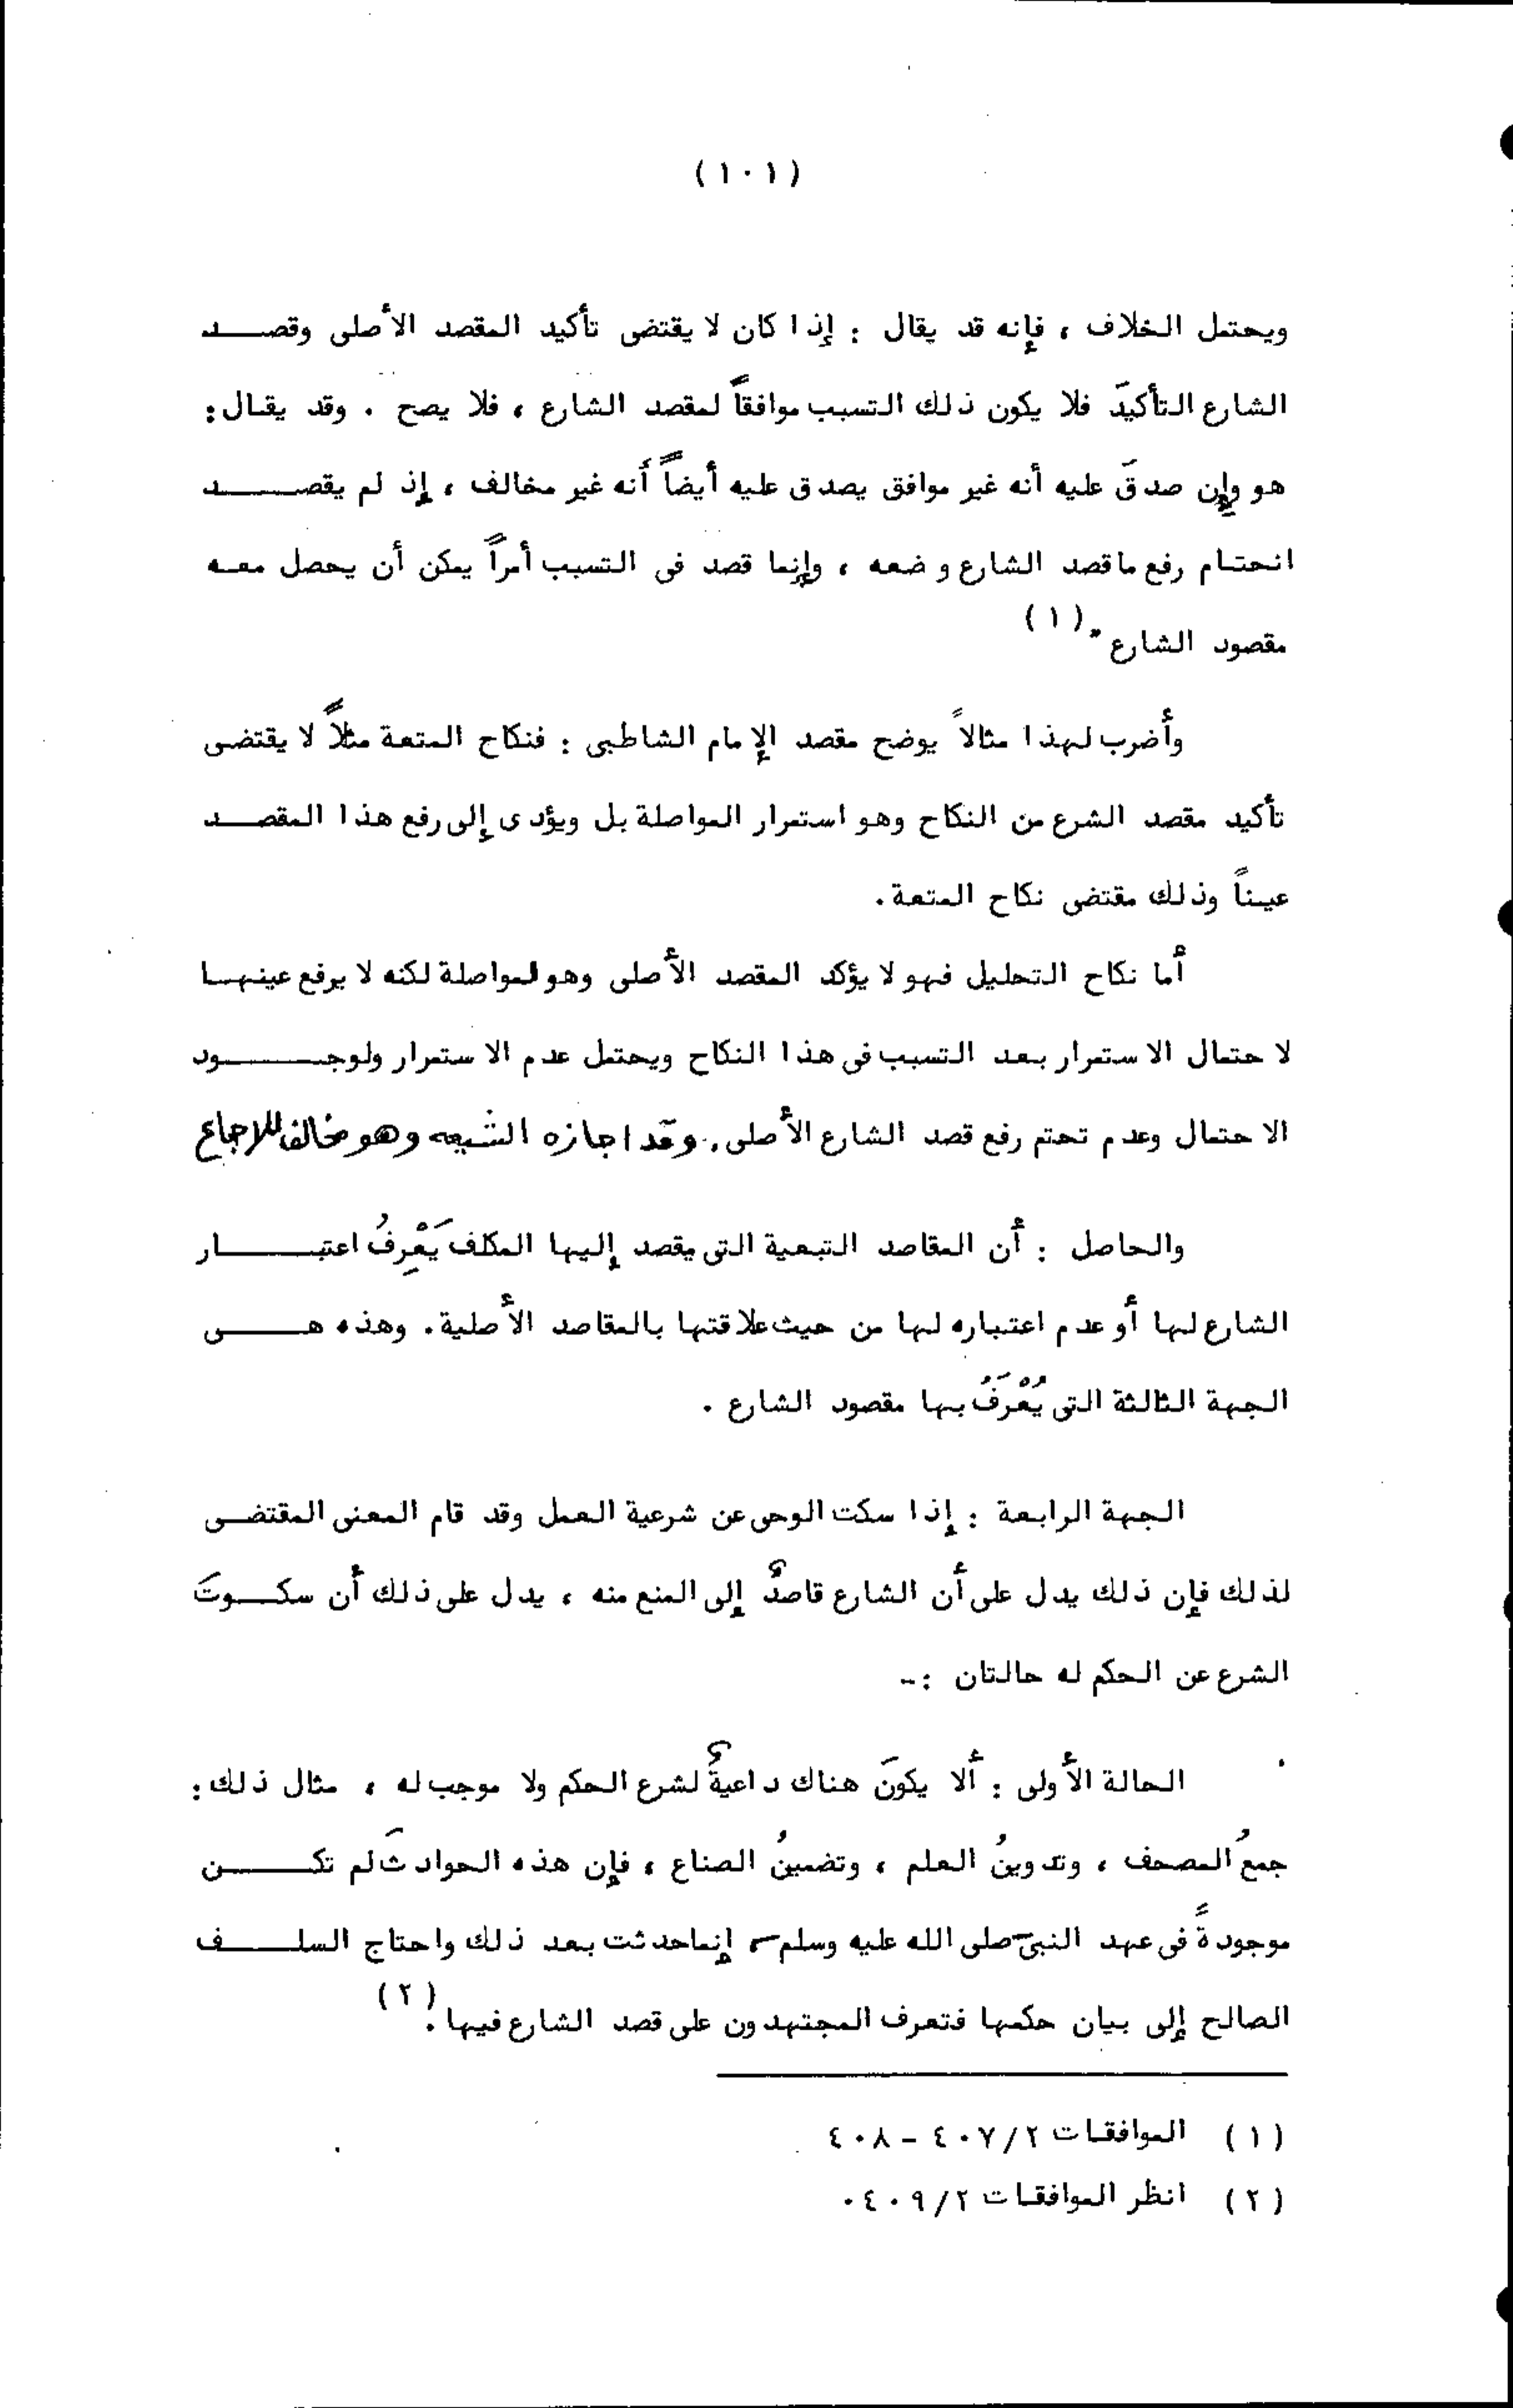 (١٠١)
ويحتمل الخلاف ، فإنه قد يقال : إذا كان لا يقتضى تأكيد المقصد الأصلى وقصد
الشارع التأكيدَ فلا يكون ذلك التسبب موافقاً لمقصد الشارع ، فلا يصح . وقد يقال :
هو وإن صدقَ عليه أنه غير موافق يصدق عليه أيضاً أنه غير مخالف ، إذ لم يقصد
انحتام رفع ماقصد الشارع وضعه ، وإنما قصد فى التسبب أمراً يمكن أن يحصل معه
مقصود الشارع " (١)
وأضرب لهذا مثالاً يوضح مقصد الإمام الشاطبى : فنكاح المتعة مثلاً لا يقتضى
تأكيد مقصد الشرع من النكاح وهو استمرار المواصلة بل ويؤدى إلى رفع هذا المقصد
عيناً وذلك مقتضى نكاح المتعة .
أما نكاح التحليل فهو لا يؤكد المقصد الأصلى وهو لمواصلة لكنه لا يرفع عينها
لاحتمال الاستمرار بعد التسبب فى هذا النكاح ويحتمل عدم الاستمرار ولوجود
الاحتمال وعدم تحتم رفع قصد الشارع الأصلى . وقد اجازه الشيعه وهو مخالف للاجماع
والحاصل : أن المقاصد التبعية التى يقصد إليها المكلف يَعْرِفُ اعتبار
الشارع لها أو عدم اعتباره لها من حيث علاقتها بالمقاصد الأصلية . وهذه هى
الجهة الثالثة التى يُعْرَفُ بها مقصود الشارع .
الجهة الرابعة : إذا سكت الوحى عن شرعية العمل وقد قام المعنى المقتضى
لذلك فإن ذلك يدل على أن الشارع قاصدٌ إلى المنع منه ، يدل على ذلك أن سكوتَ
الشرع عن الحكم له حالتان :-
الحالة الأولى : ألا يكونَ هناك داعيةٌ لشرع الحكم ولا موجب له ، مثال ذلك :
جمعُ المصحف ، وتدوينُ العلم ، وتضمينُ الصناع ، فإن هذه الحوادثَ لم تكن
موجودةً فى عهد النبى صلى الله عليه وسلم - إنما حدثت بعد ذلك واحتاج السلف
الصالح إلى بيان حكمها فتعرف المجتهدون على قصد الشارع فيها . (٢)
(١) الموافقات ٤٠٧/٢ - ٤٠٨
(٢) انظر الموافقات ٤٠٩/٢ .